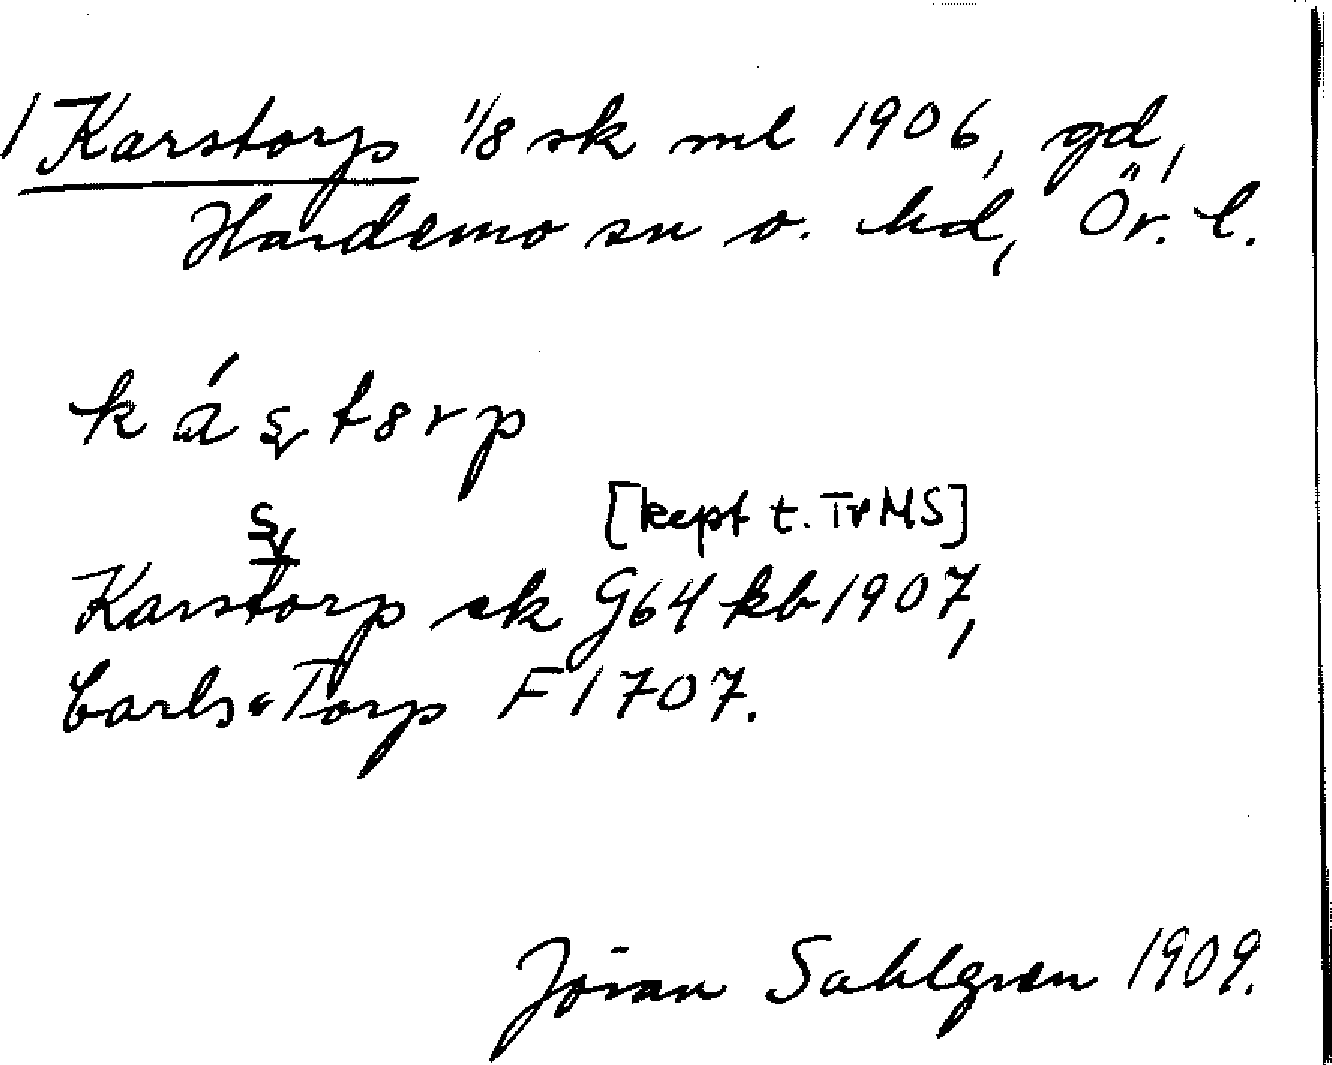 1 Karstorp 1/8 sk ml 1906, gd,
Hardemo sn o. hd, Ör. l.
kástorp
s
[kept t. TrMS]
Karstorp ek G64 kb 1907,
Carls-Torp F 1707.
Jöran Sahlgren 1909.